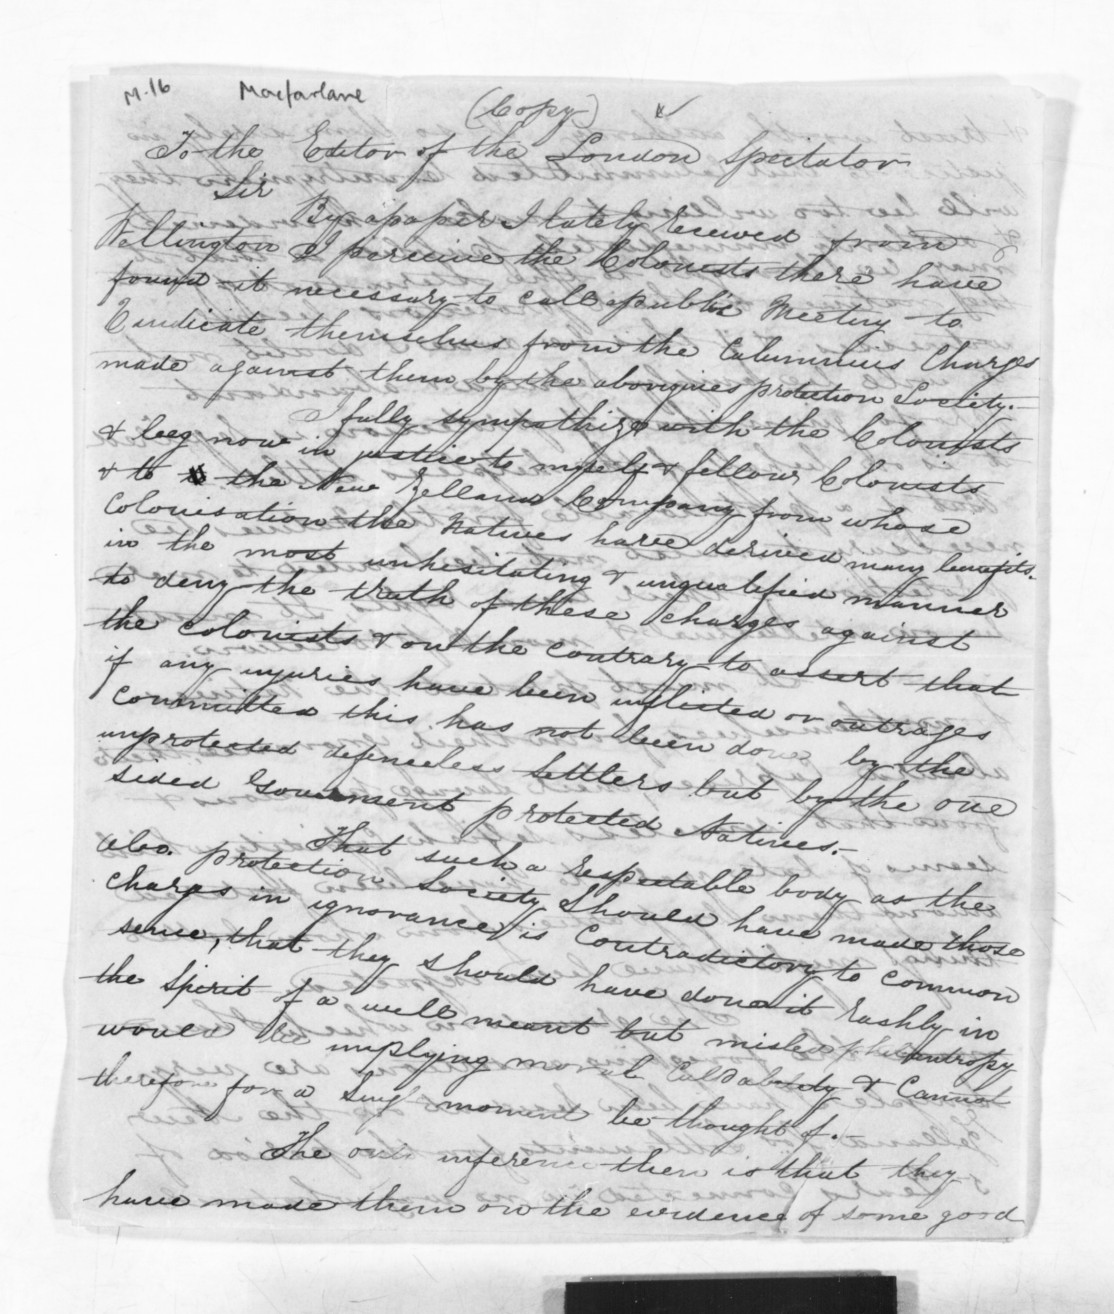 M.16 Macfarlane
(Copy)
To the Editor of the London Spectator
Sir
By a paper I lately received from
Wellington I perceive the Colonists there have
found it necessary to call a public Meeting to
Vindicate themselves from the Calumnius Charges
made against them by the aborigines protection Society.-
I fully sympathize with the Colonists
& beg now in justice to myself & fellow Colonists
& to the New Zelland Company from whose
Colonisation the Natives have derived many benefits.
in the most unhesitating & unqualified manner
to deny the truth of these charges against
the colonists & on the contrary to assert that
if any injuries have been inflected or outrages
committed this has not been done by the
unprotected defenceless Settlers but by the one
sided Government protected Natives.-
That such a respectable body as the
abo. protection Society should have made those
charges in ignorance is Contradictory to common
sense, that they should have done it rashly in
the spirit of a well meant but misled philantropy
would be implying moral Culpability & Cannot
therefore for a Singl moment be thought of.
The only inference then is that they
have made them on the evidence of some good